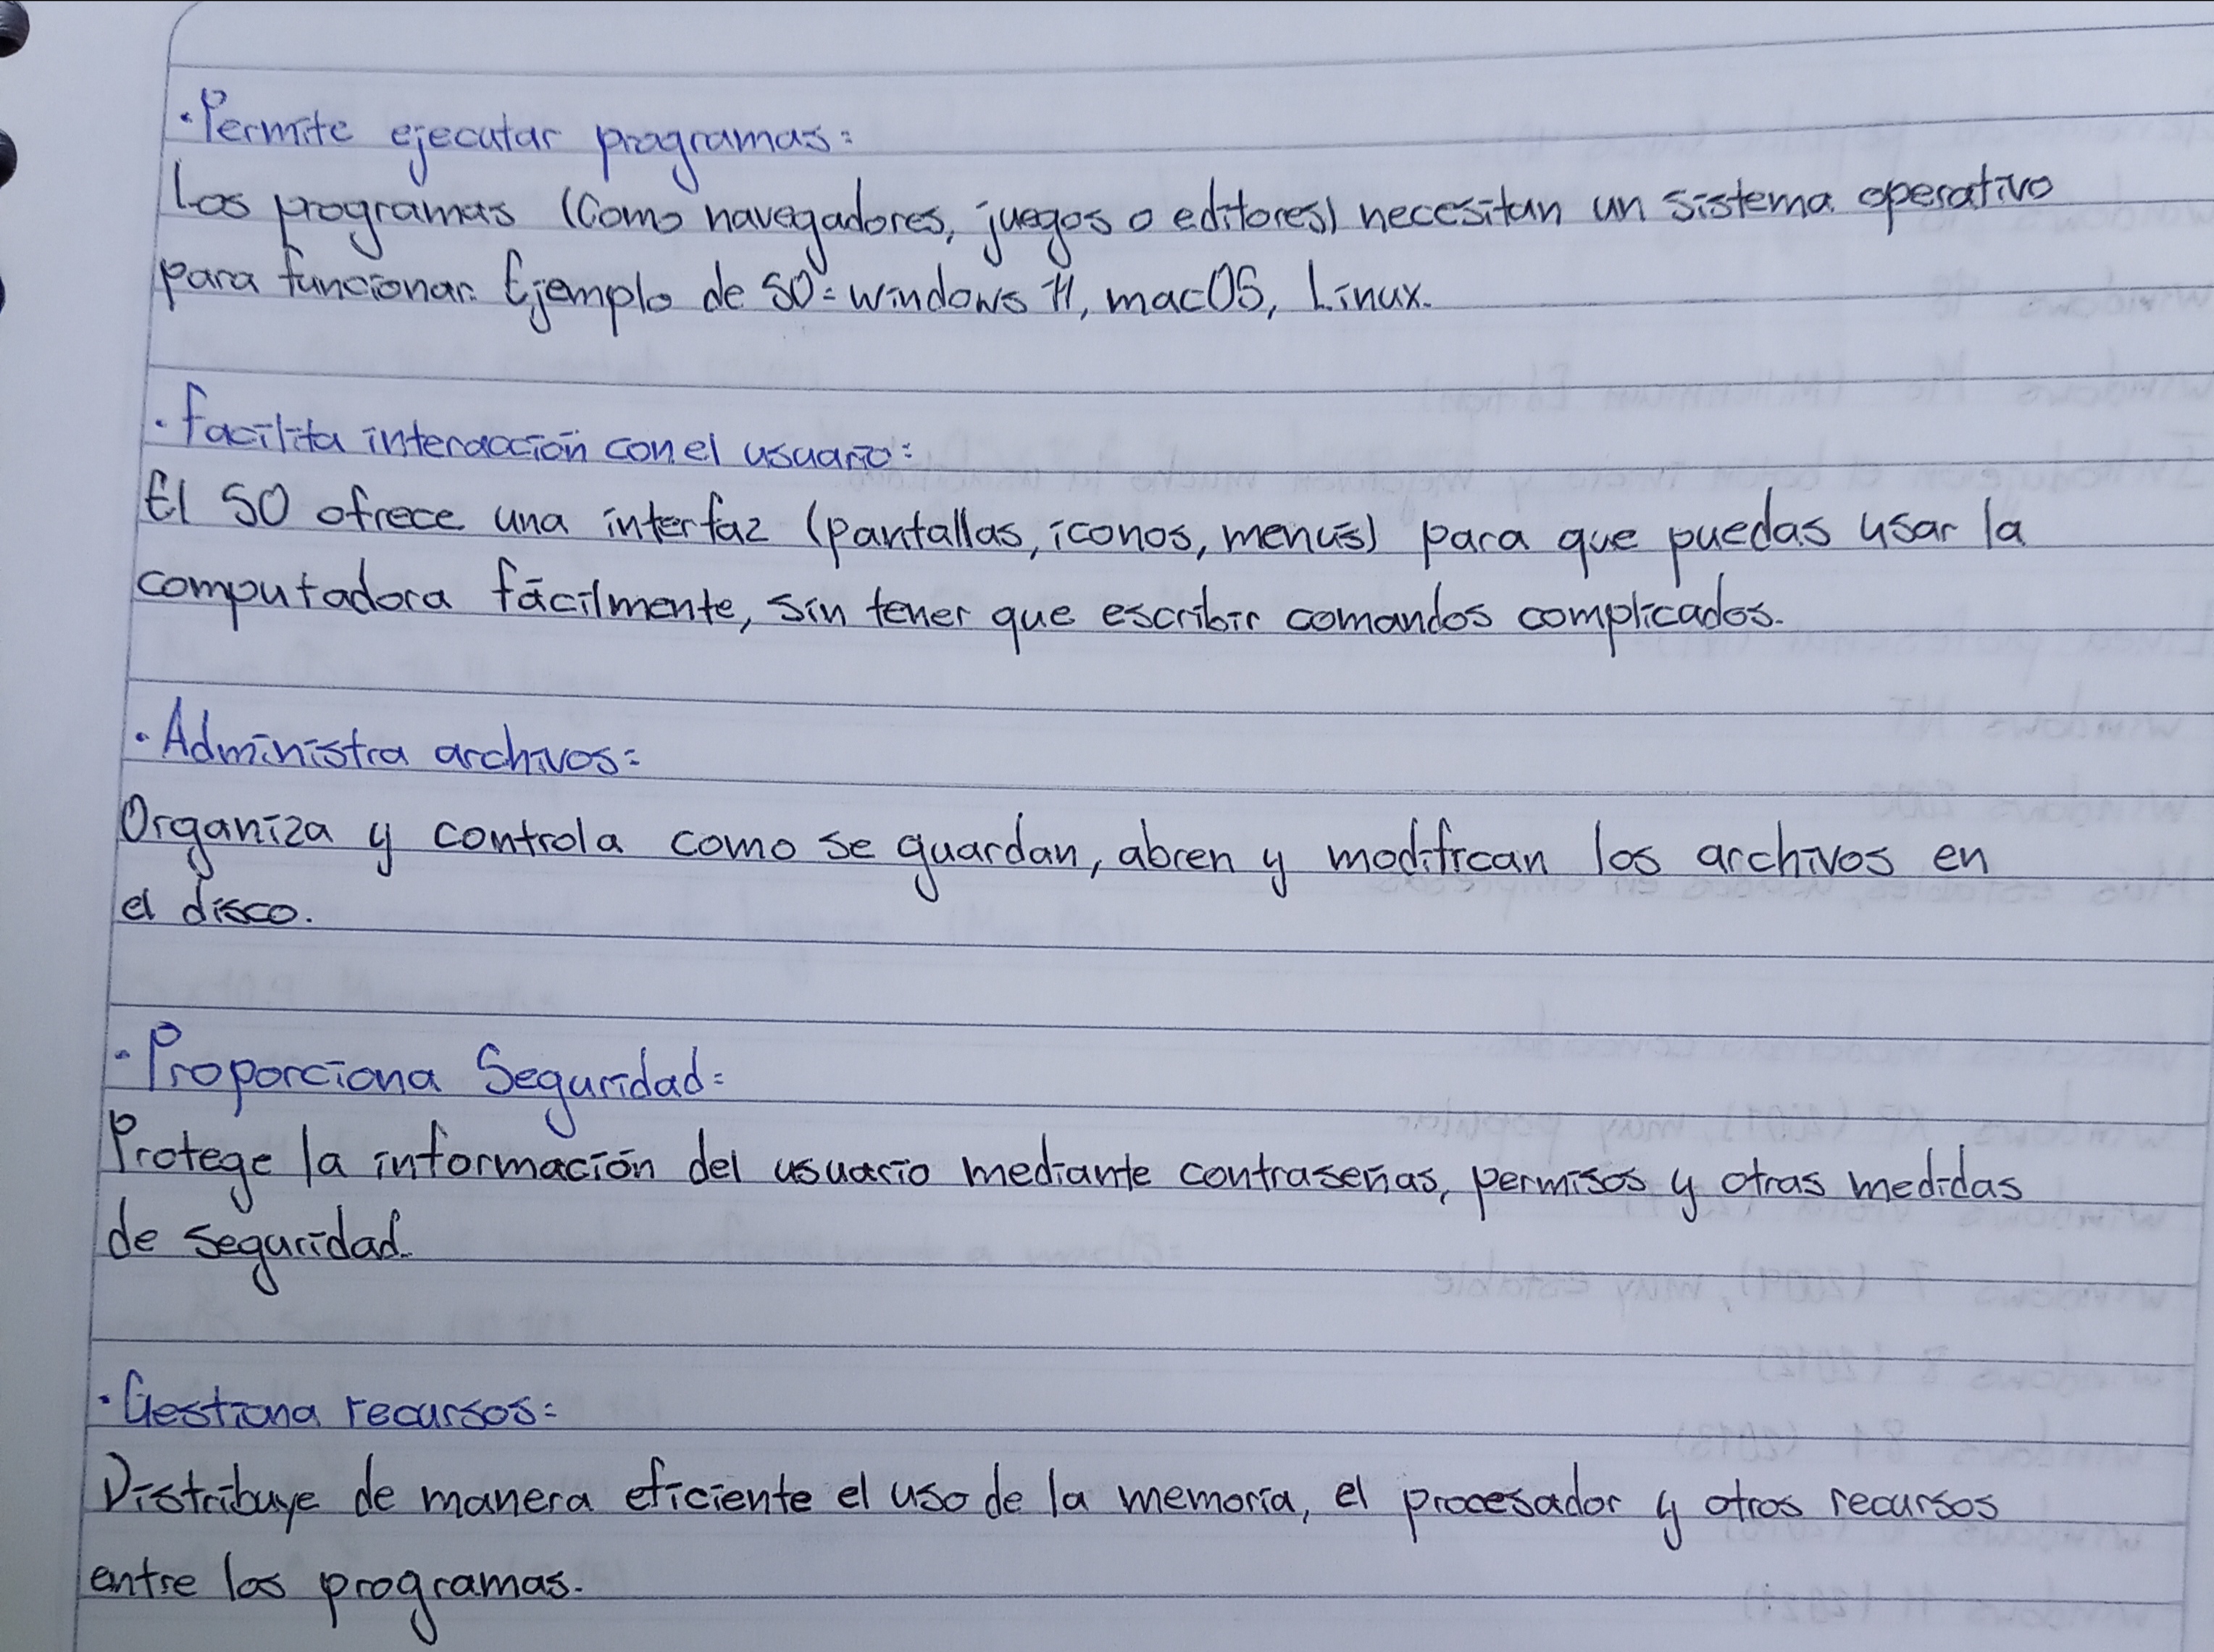 · Permite ejecutar programas:
Los programas (Como navegadores, juegos o editores) necesitan un sistema operativo
para funcionar. Ejemplo de SO: windows 11, macOS, Linux.
· facilita interacción con el usuario:
El SO ofrece una interfaz (pantallas, iconos, menús) para que puedas usar la
computadora fácilmente, sin tener que escribir comandos complicados.
· Administra archivos:
Organiza y controla como se guardan, abren y modifican los archivos en
el disco.
· Proporciona Seguridad:
Protege la información del usuario mediante contraseñas, permisos y otras medidas
de seguridad.
· Gestiona recursos:
Distribuye de manera eficiente el uso de la memoria, el procesador y otros recursos
entre los programas.